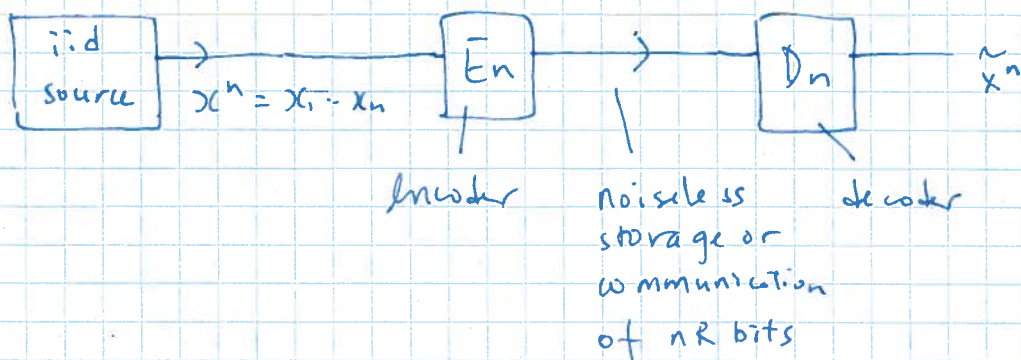 iid
source
xⁿ = x₁ ⋯ xₙ
Eₙ
Dₙ
x̃ⁿ
encoder
noiseless
storage or
communication
of nR bits
decoder